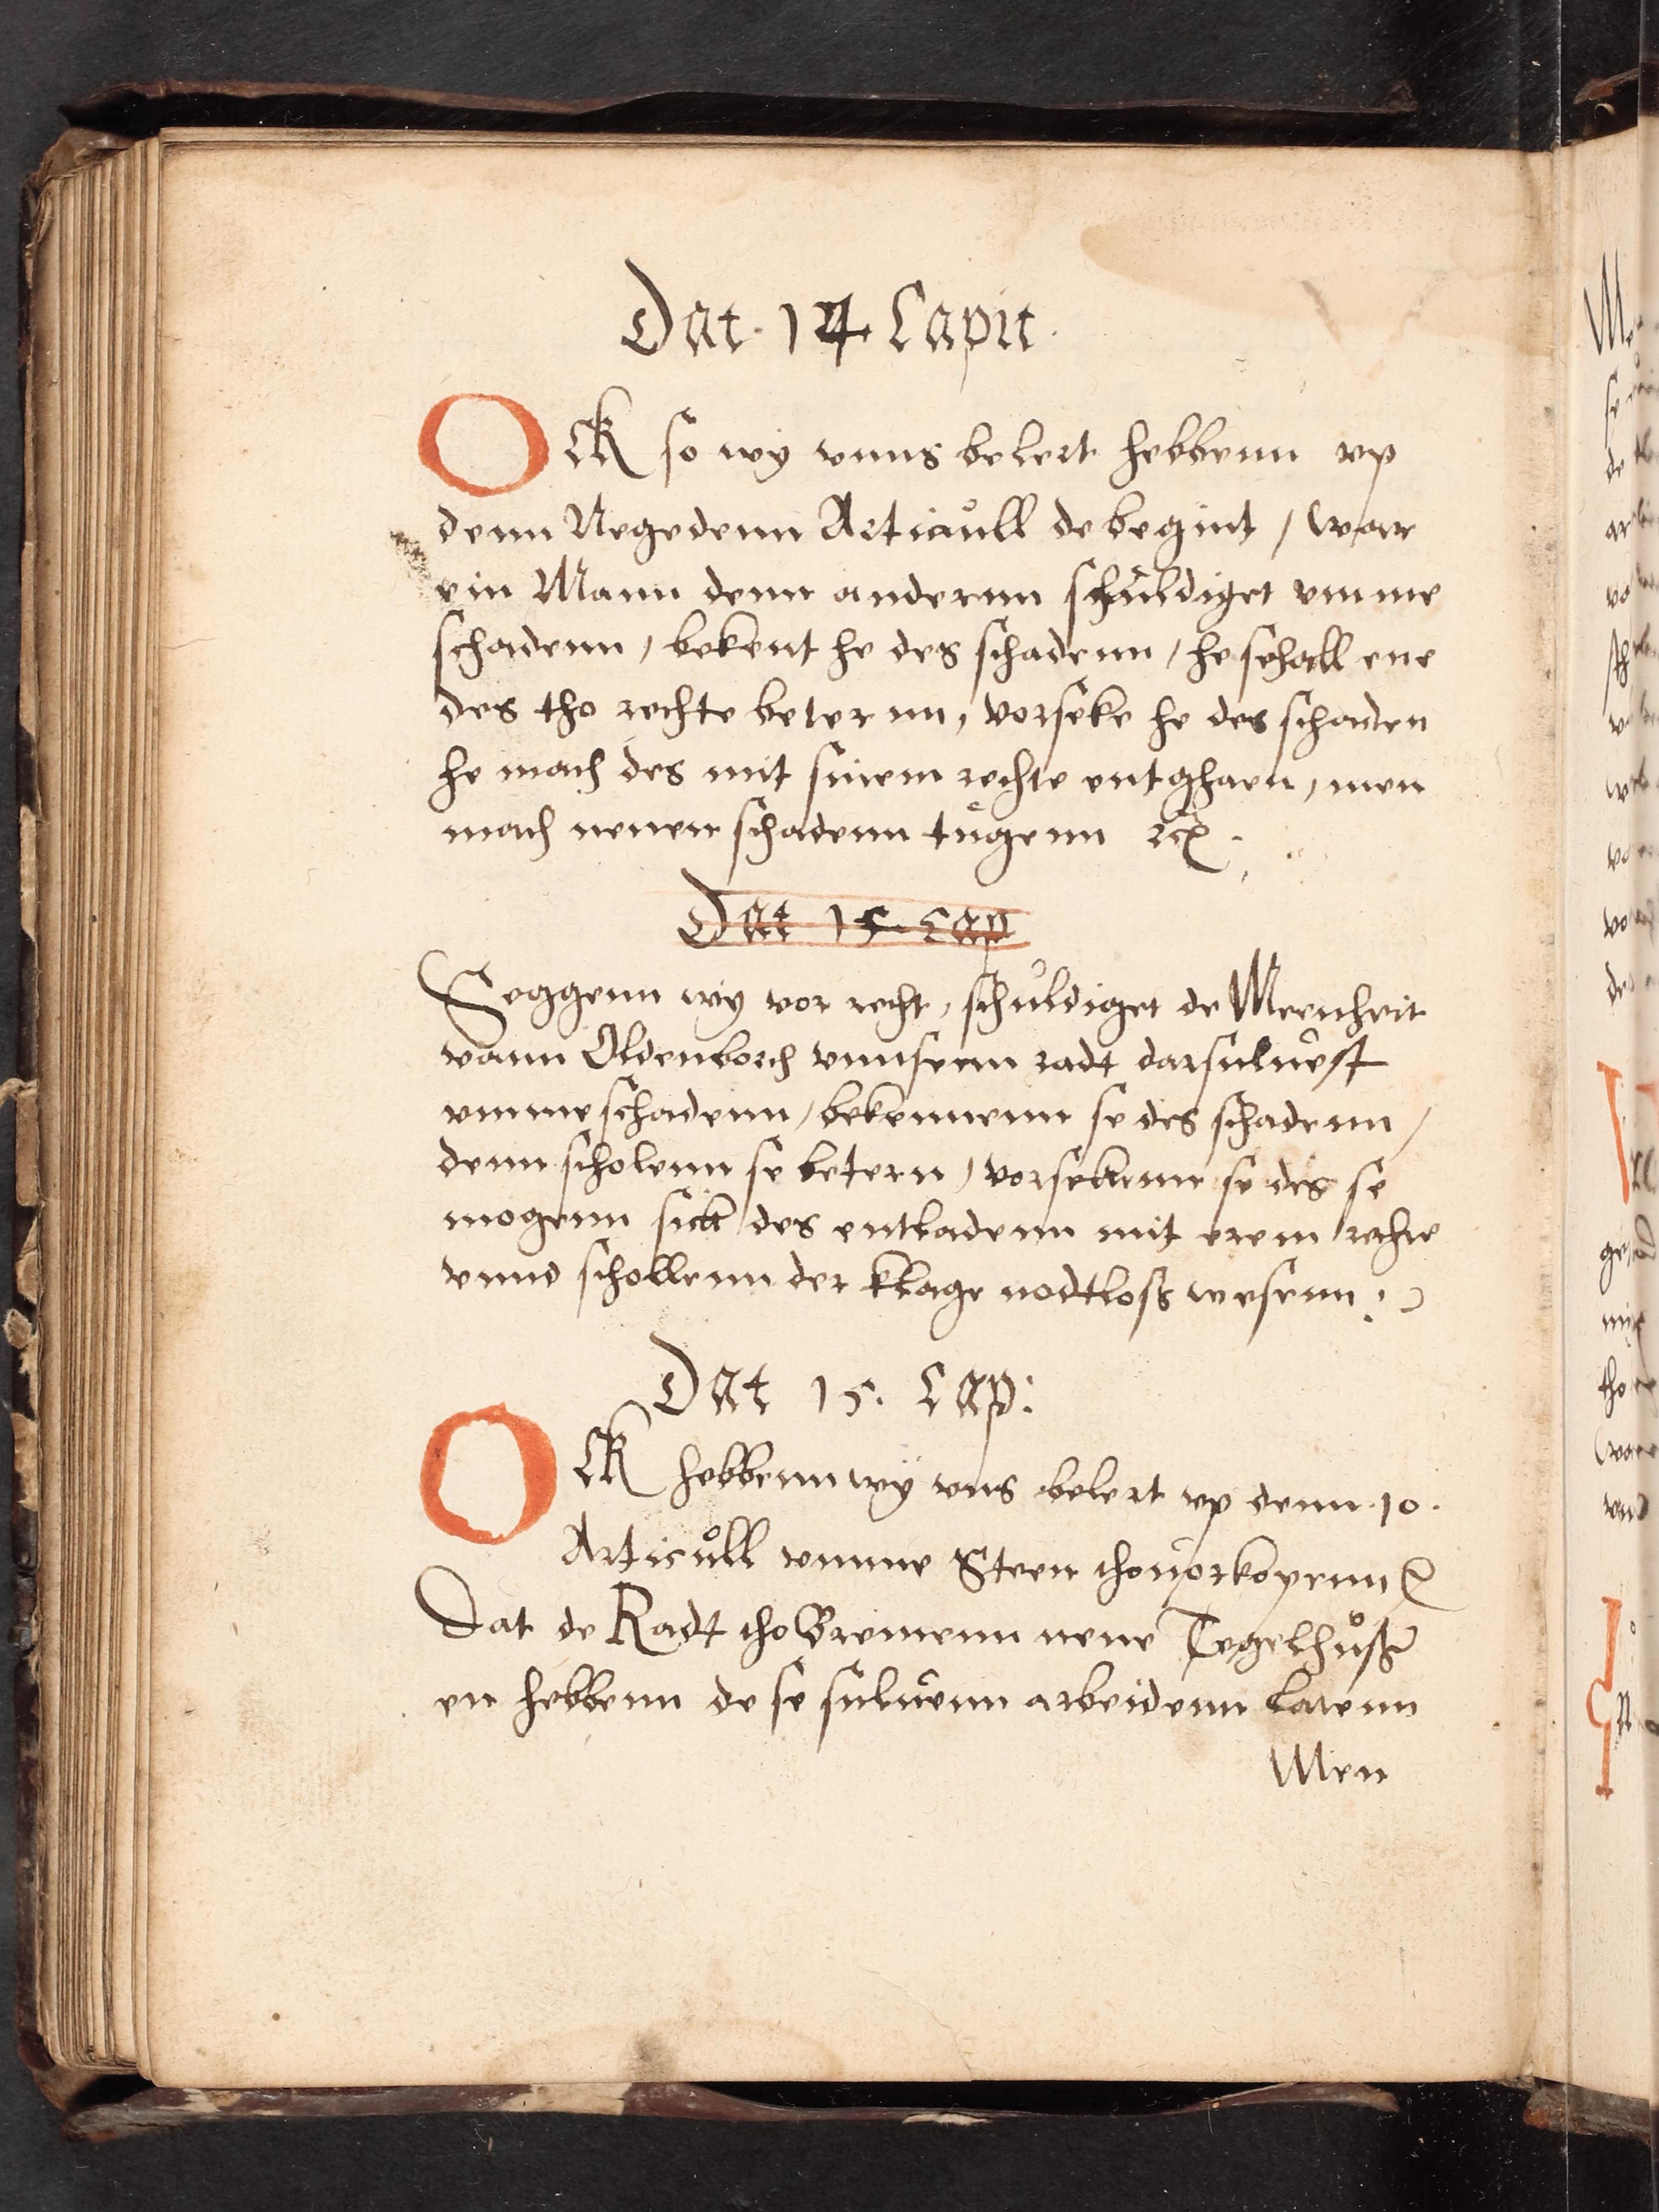 Dat · 14 Capit ·
OCK so wy vnns belert hebbenn vp
denn Negedenn Articůll de begint / Wor
ein Mann denn andernn schůldiget vmme
schadenn / bekent he des schadenn / he schall ene
des tho rechte beternn, vorseke he des schaden
he mach des mit sinem rechte entghaen, men
mach nenen schadenn tůgenn ꝛcͣ.
Dat 15. Cap
Seggenn wy vor recht, schůldiget de Meenheit
vann Oldenborch vnnsenn radt darsuluest
vmme schadenn, bekennenn se des schadenn /
denn scholenn se betern, vorsekenn se des se
mogenn sick des entladenn mit erem rechte
vnnd schollenn der klage nodtloß wesenn :
Dat 15. Cap:
OCK hebbenn wy vns belert vp denn · 10 ·
Articůll vmme Steen thouorkopenn
Dat de Radt tho Bremenn nene Tegelhůß
en hebbenn de se suluenn arbeidenn latenn
Men